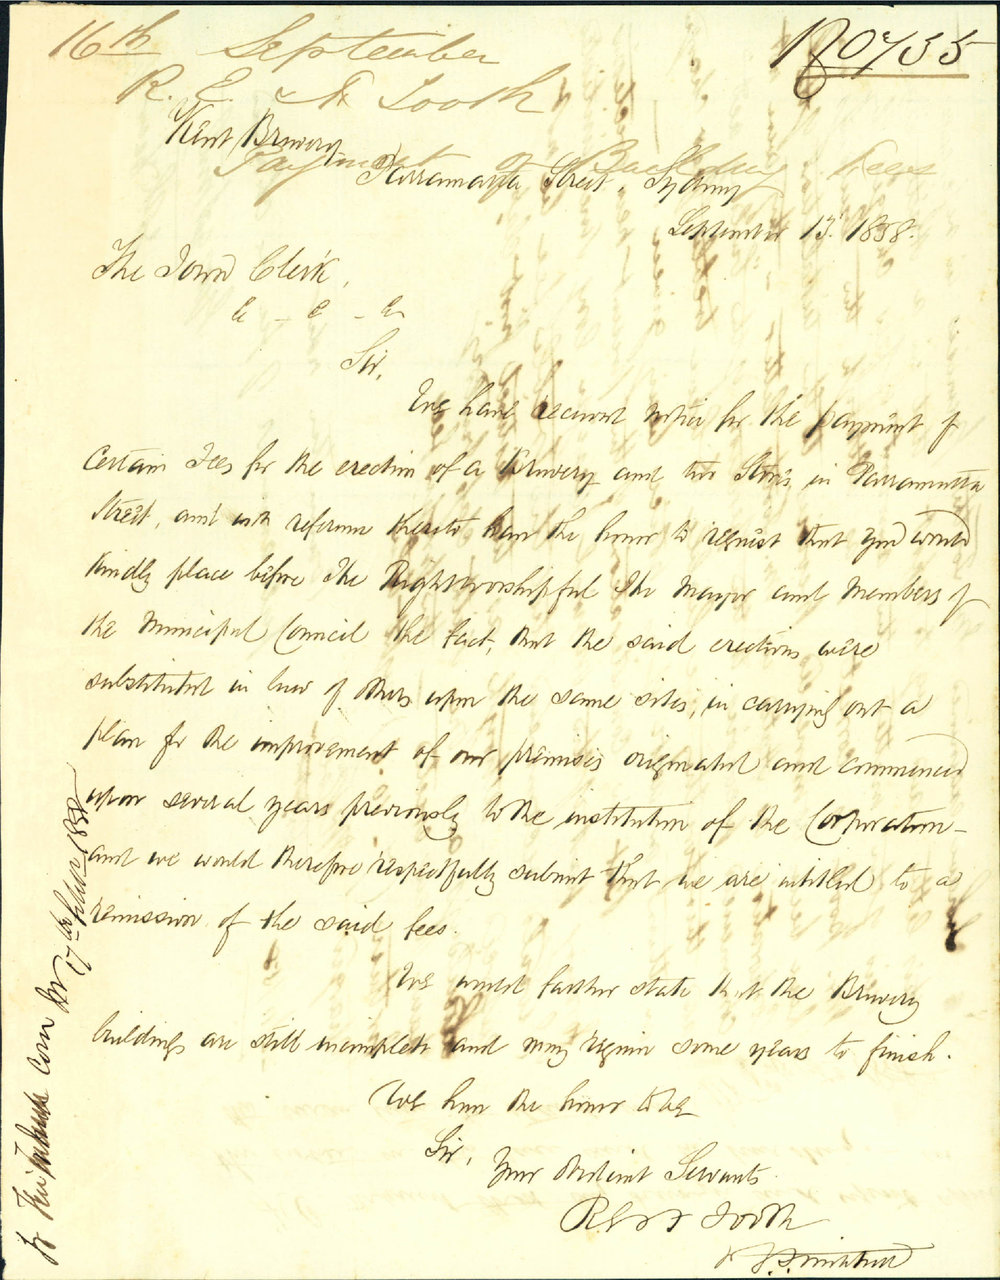 16th September
R. E. & F. Tooth
Payment of Building Fees
Kent Brewery
Parramatta Street, Sydney
September 15. 1858.
The Town Clerk,
& - & - &
Sir,
We have received notice for the payment of
certain fees for the erection of a Brewery and two Stores in Parramatta
Street, and with reference thereto have the honor to request that you would
kindly place before The Right worshipful the Mayor and Members of
the Municipal Council the fact, that the said erections were
substituted in lieu of others upon the same sites, in carrying out a
plan for the improvement of our premises originated and commenced
upon several years previously to the institution of the Corporation -
and we would therefore respectfully submit that we are entitled to a
remission of the said fees.
We would further state that the Brewery
buildings are still incomplete and may require some years to finish.
We have the honor to be
Sir, Your Obedient Servants
R E & F Tooth
17 September 1858